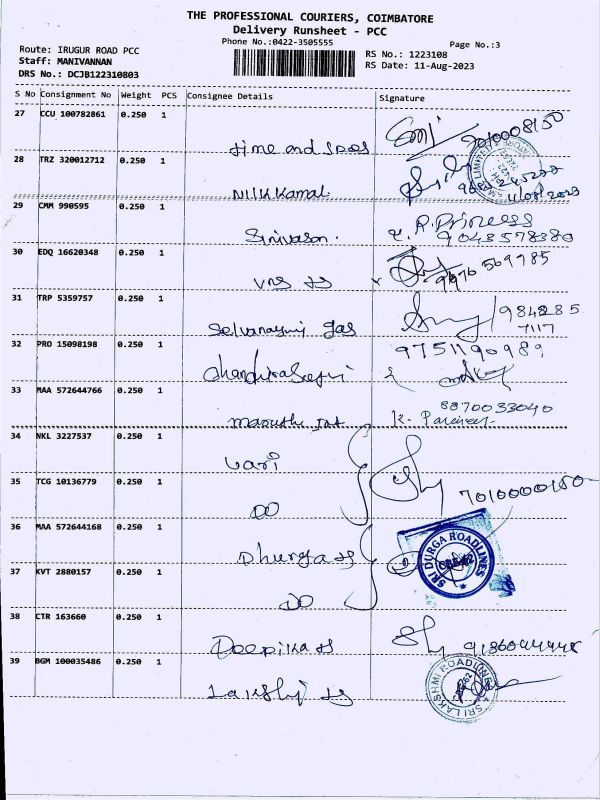 THE PROFESSIONAL COURIERS, COIMBATORE
Delivery Runsheet - PCC
Phone No.:0422-3505555
Page No.:3
Route: IRUGUR ROAD PCC
Staff: MANIVANNAN
DRS No.: DCJB122310803
RS No.: 1223108
RS Date: 11-Aug-2023
S No Consignment No Weight PCS Consignee Details Signature
27 CCU 100782861 0.250 1
time and
7010008150
28 TRZ 320012712 0.250 1
Nilkkamal
11/08/2023
29 CMM 990595 0.250 1
Srinivasan.
R. Princess
9043578380
30 EDQ 16620348 0.250 1
VNS
9976569785
31 TRP 5359757 0.250 1
Selvanayaki gas
984285
7117
32 PRO 15098198 0.250 1
9751190989
33 MAA 572644766 0.250 1
8870033040
K.
34 NKL 3227537 0.250 1
Vari
35 TCG 10136779 0.250 1
DO
7010000150
36 MAA 572644168 0.250 1
Dhurga
SRI DURGA ROADLINES
37 KVT 2880157 0.250 1
DO
38 CTR 163660 0.250 1
Deepika
39 BGM 100035486 0.250 1
SRI LAKSHMI ROADLINES